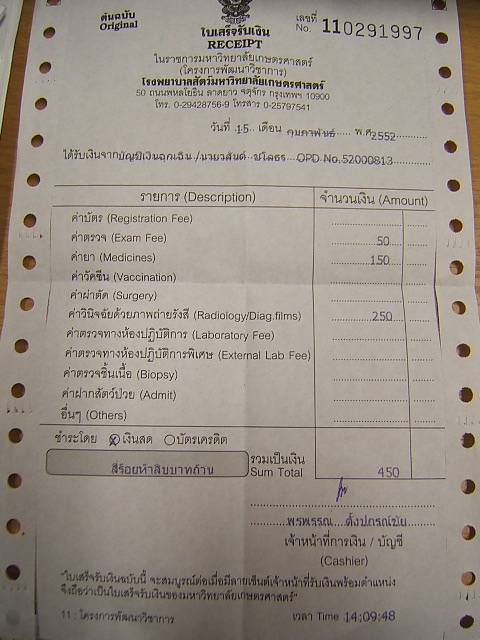 ต้นฉบับ
Original
เลขที่
No. 110291997
ใบเสร็จรับเงิน
RECEIPT
ในราชการมหาวิทยาลัยเกษตรศาสตร์
(โครงการพัฒนาวิชาการ)
โรงพยาบาลสัตว์มหาวิทยาลัยเกษตรศาสตร์
50 ถนนพหลโยธิน ลาดยาว จตุจักร กรุงเทพฯ 10900
โทร. 0-29428756-9 โทรสาร 0-25797541
วันที่ 15 เดือน กุมภาพันธ์ พ.ศ 2552
ได้รับเงินจาก บัญชีเงินฉุกเฉิน/นายวสันต์ OPD No.52000813
รายการ (Description) จำนวนเงิน (Amount)
ค่าบัตร (Registration Fee)
ค่าตรวจ (Exam Fee) 50
ค่ายา (Medicines) 150
ค่าวัคซีน (Vaccination)
ค่าผ่าตัด (Surgery)
ค่าวินิจฉัยด้วยภาพถ่ายรังสี (Radiology/Diag.films) 250
ค่าตรวจทางห้องปฏิบัติการ (Laboratory Fee)
ค่าตรวจทางห้องปฏิบัติการพิเศษ (External Lab Fee)
ค่าตรวจชิ้นเนื้อ (Biopsy)
ค่าฝากสัตว์ป่วย (Admit)
อื่นๆ (Others)
ชำระโดย เงินสด บัตรเครดิต
รวมเป็นเงิน
สี่ร้อยห้าสิบบาทถ้วน Sum Total 450
พรพรรณ ตั้งปกรณ์ชัย
เจ้าหน้าที่การเงิน / บัญชี
(Cashier)
"ใบเสร็จรับเงินฉบับนี้ จะสมบูรณ์ต่อเมื่อมีลายเซ็นต์เจ้าหน้าที่รับเงินพร้อมตำแหน่ง
จึงถือว่าเป็นใบเสร็จรับเงินของมหาวิทยาลัยเกษตรศาสตร์"
11 : โครงการพัฒนาวิชาการ เวลา Time 14:09:48